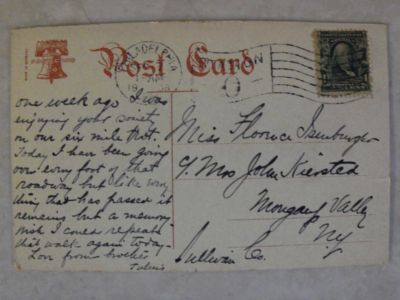 Post Card
PHILADELPHIA
one week ago I was
enjoying your society
on our six mile trot.
Today I have been going
over every foot of that
roadway but like every
thing that has passed it
remains but a memory
wish I could repeat
that walk again today
Love from brother
Miss Florence Isenburger
c/o Mrs John Kiersted
Mongaup Valley
N.Y.
Sullivan Co.